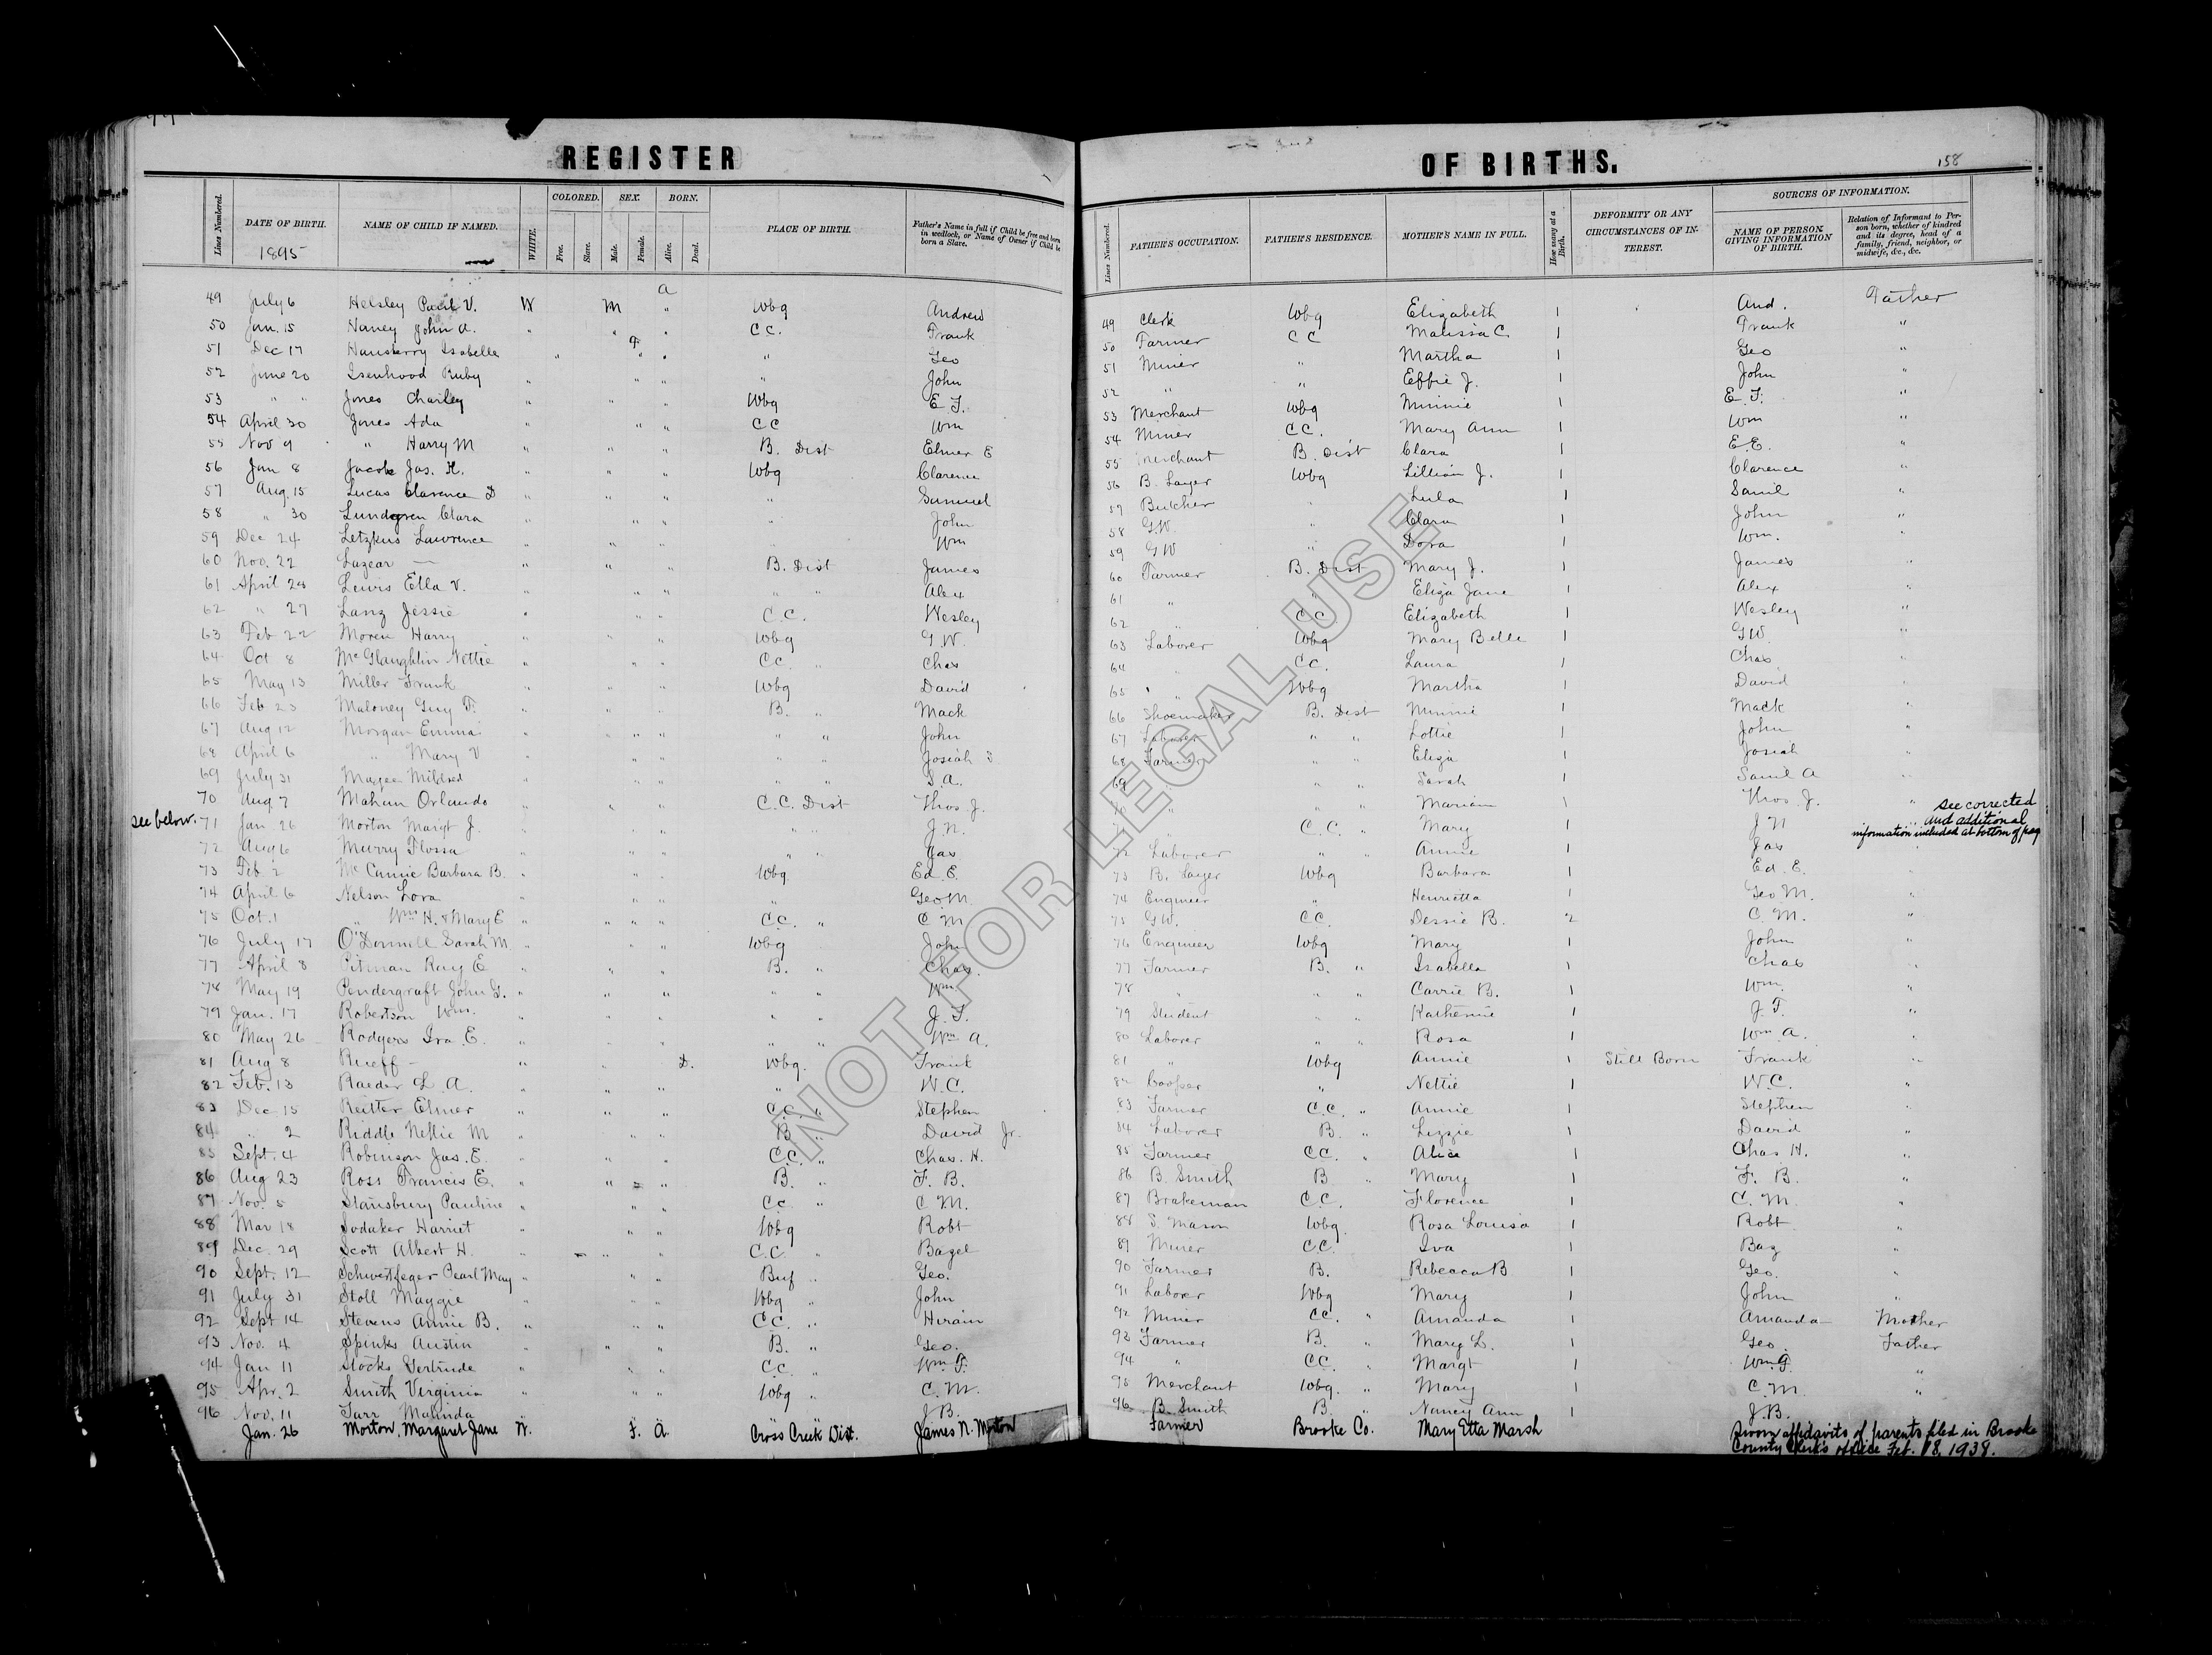 REGISTER OF BIRTHS.
158
Lines Numbered. DATE OF BIRTH. 1895 NAME OF CHILD IF NAMED. WHITE. COLORED. Free. Slave. SEX. Male. Female. BORN. Alive. Dead. PLACE OF BIRTH. Father's Name in full if Child be free and born in wedlock, or Name of Owner if Child be born a Slave.
Lines Numbered. FATHER'S OCCUPATION. FATHER'S RESIDENCE. MOTHER'S NAME IN FULL. How many at a Birth. DEFORMITY OR ANY CIRCUMSTANCES OF INTEREST. SOURCES OF INFORMATION. NAME OF PERSON GIVING INFORMATION OF BIRTH. Relation of Informant to Person born, whether of kindred and its degree, head of a family, friend, neighbor, or midwife, &c., &c.
49 July 6 Helsley Paul V. W M a Wbg Andrew 49 Clerk Wbg Elizabeth 1 And. Father
50 Jan. 15 Haney John A. " " " C.C. Frank 50 Farmer C C Malissa C. 1 Frank "
51 Dec 17 Hansberry Isabelle " F " " " Geo 51 Miner " Martha 1 Geo "
52 June 20 Isenhood Ruby " " " " John 52 " " Effie J. 1 John "
53 " " Jones Charley " " " Wbg E F. 53 Merchant Wbg Minnie 1 E. F. "
54 April 30 Jones Ada " " " CC Wm 54 Miner CC. Mary Ann 1 Wm "
55 Nov 9 " Harry M " " " B. Dist Elmer E 55 Merchant B. Dist Clara 1 E.E. "
56 Jan 8 Jacob Jas. H. " " " Wbg Clarence 56 B. Layer Wbg Lillian J. 1 Clarence "
57 Aug. 15 Lucas Clarence D " " " " Samuel 57 Butcher " Lula 1 Saml "
58 " 30 Lundgren Clara " " " " John 58 G.W. " Clara 1 John "
59 Dec 24 Letzkus Lawrence " " " " Wm 59 GW " Dora 1 Wm. "
60 Nov. 22 Lazear — " " " B. Dist James 60 Farmer B. Dist Mary J. 1 James "
61 April 28 Lewis Ella V. " " " " " Alex 61 " " Eliza Jane 1 Alex "
62 " 27 Lanz Jessie " " " C.C. Wesley 62 " C.C Elizabeth 1 Wesley "
63 Feb 22 Moren Harry " " " Wbg G.W. 63 Laborer Wbg Mary Belle 1 G.W. "
64 Oct 8 McGlaughlin Nettie " " " C.C. " Chas 64 " C.C. Laura 1 Chas "
65 May 13 Miller Frank " " " Wbg David 65 " Wbg Martha 1 David "
66 Feb 23 Maloney Guy F. " " " B. " Mack 66 Shoemaker B. Dist Minnie 1 Mack "
67 Aug 12 Morgan Emma " " " " " John 67 Laborer " " Lottie 1 John "
68 April 6 " Mary V " " " " " Josiah S 68 Farmer " " Eliza 1 Josiah "
69 July 31 Magee Mildred " " " " " S.A. 69 " " " Sarah 1 Saml A "
70 Aug. 7 Mahan Orlando " " " C.C. Dist Thos. J. " " " Mariam 1 Thos. J. "
see below. 71 Jan 26 Morton Margt J. " " " " " J.N. " C.C. " Mary 1 J N " see corrected and additional information included at bottom of page
72 Aug 6 Murry Flossa " " " " " Jas 72 Laborer " " Annie 1 Jas "
73 Feb. 2 McCamie Barbara B. " " " Wbg Ed. E. 73 B. Layer Wbg Barbara 1 Ed. E. "
74 April 6 Nelson Lora " " " " Geo M. 74 Engineer " Henrietta 1 Geo M. "
75 Oct. 1 " Wm H. & Mary E " " " " C.C. " C M 75 G.W. C.C. Dessie B. 2 C. M. "
76 July 17 O'Donnell Sarah M. " " " Wbg John 76 Engineer Wbg Mary 1 John "
77 April 8 Pitman Ray E. " " " B. " Chas. 77 Farmer B. " Isabella 1 Chas "
78 May 19 Pendergraft John G. " " " " " Wm. 78 " " " Carrie B. 1 Wm. "
79 Jan. 17 Robertson Wm. " " " " " J. F. 79 Student " " Katherine 1 J. F. "
80 May 26 Rodgers Ira E. " " " " " Wm A. 80 Laborer " " Rosa 1 Wm A. "
81 Aug 8 Rueff — " " D. Wbg. Frank 81 " Wbg Annie 1 Still Born Frank "
82 Feb. 13 Raeder L. A. " " " " W.C. 82 Cooper " Nettie 1 W.C. "
83 Dec 15 Reitter Elmer " " " C.C. " Stephen 83 Farmer C.C. " Annie 1 Stephen "
84 " 2 Riddle Nellie M " " " B " David Jr. 84 Laborer B. " Lizzie 1 David "
85 Sept. 4 Robinson Jas. E. " " " C.C. " Chas. H. 85 Farmer C.C. " Alice 1 Chas H. "
86 Aug 23 Ross Francis E. " " " B. " F. B. 86 B. Smith B " Mary 1 F. B. "
87 Nov. 5 Stansbury Pauline " " " C.C. " C M. 87 Brakeman C.C. Florence 1 C. M. "
88 Mar 18 Sodaker Harriet " " " Wbg Robt 88 S. Mason Wbg. Rosa Louisa 1 Robt "
89 Dec. 29 Scott Albert H. " " " C.C. " Bazel 89 Miner C.C. Iva 1 Baz "
90 Sept. 12 Schwertfeger Pearl May " " " Buf " Geo. 90 Farmer B. Rebecca B 1 Geo. "
91 July 31 Stoll Maggie " " " Wbg " John 91 Laborer Wbg Mary 1 John "
92 Sept 14 Stevens Annie B. " " " C.C. " Hiram 92 Miner C.C. " Amanda 1 Amanda Mother
93 Nov. 4 Spinks Austin " " " B. " Geo. 93 Farmer B. " Mary L. 1 Geo. Father
94 Jan 11 Stocks Gertrude " " " C.C. " Wm F. 94 " C.C. " Margt 1 "
95 Apr. 2 Smith Virginia " " " Wbg " C. M. 95 Merchant Wbg. " Mary 1 C.M. "
96 Nov. 11 Tarr Malinda J B. 96 B. Smith B. " Nancy Ann 1 J.B.
Jan. 26 Morton, Margaret Jane W. F. A. Cross Creek Dist. James N. Morton Farmer Brooke Co. Mary Etta Marsh Sworn affidavits of parents filed in Brooke
County Clerk's office Feb. 18, 1938.
NOT FOR LEGAL USE